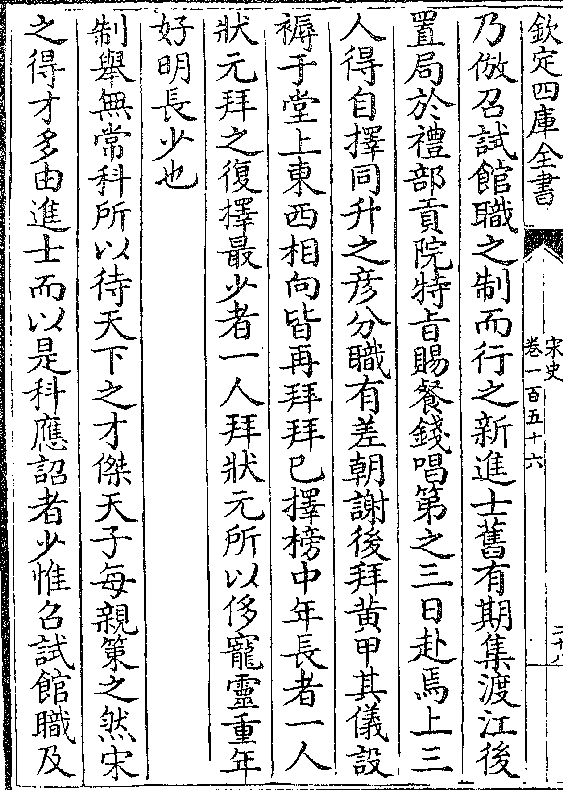 欽定四庫全書
宋史
卷一百五十六
乃倣召試館職之制而行之新進士舊有期集渡江後
置局於禮部貢院特旨賜餐錢唱第之三日赴焉上三
人得自擇同升之彦分職有差朝謝後拜黃甲其儀設
褥于堂上東西相向皆再拜拜已擇榜中年長者一人
狀元拜之復擇最少者一人拜狀元所以侈寵靈重年
好明長少也
制舉無常科所以待天下之才傑天子每親策之然宋
之得才多由進士而以是科應詔者少惟召試館職及